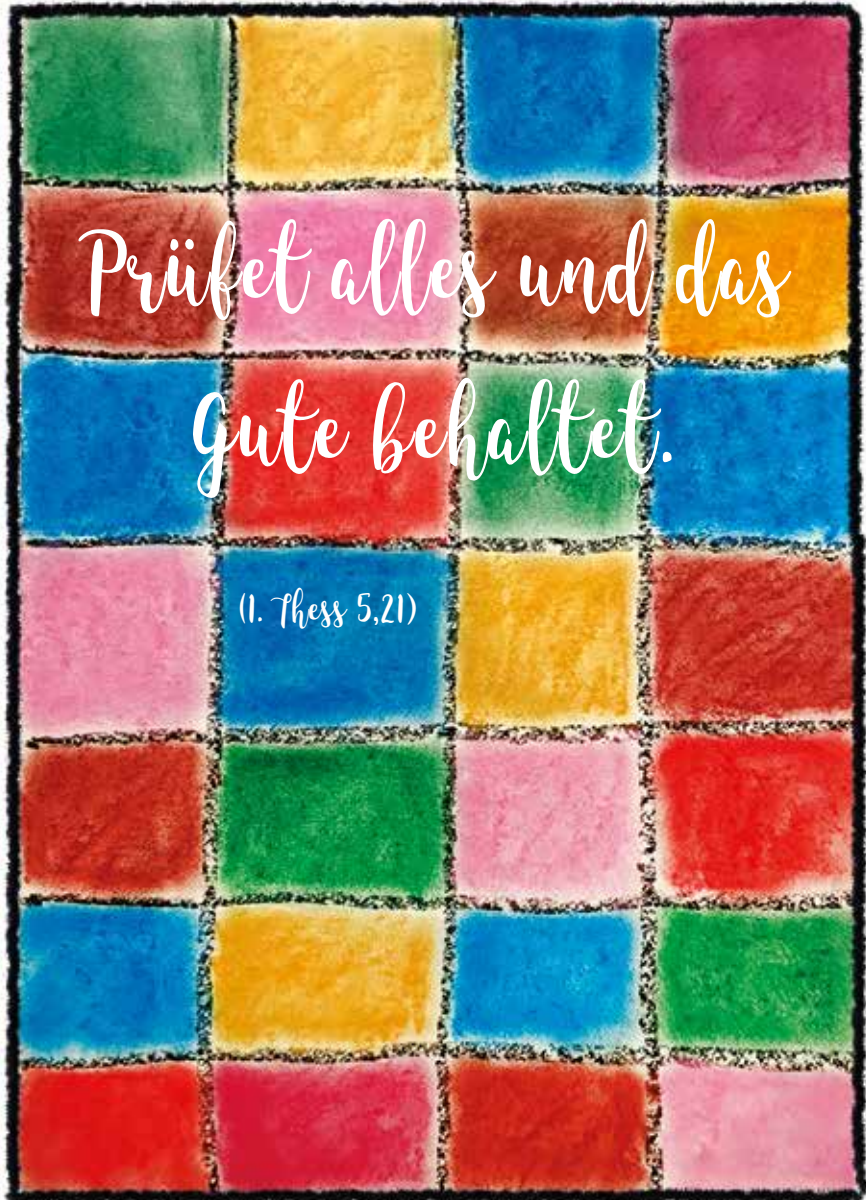 Prüfet alles und das
gute behaltet.
(1. Thess 5,21)